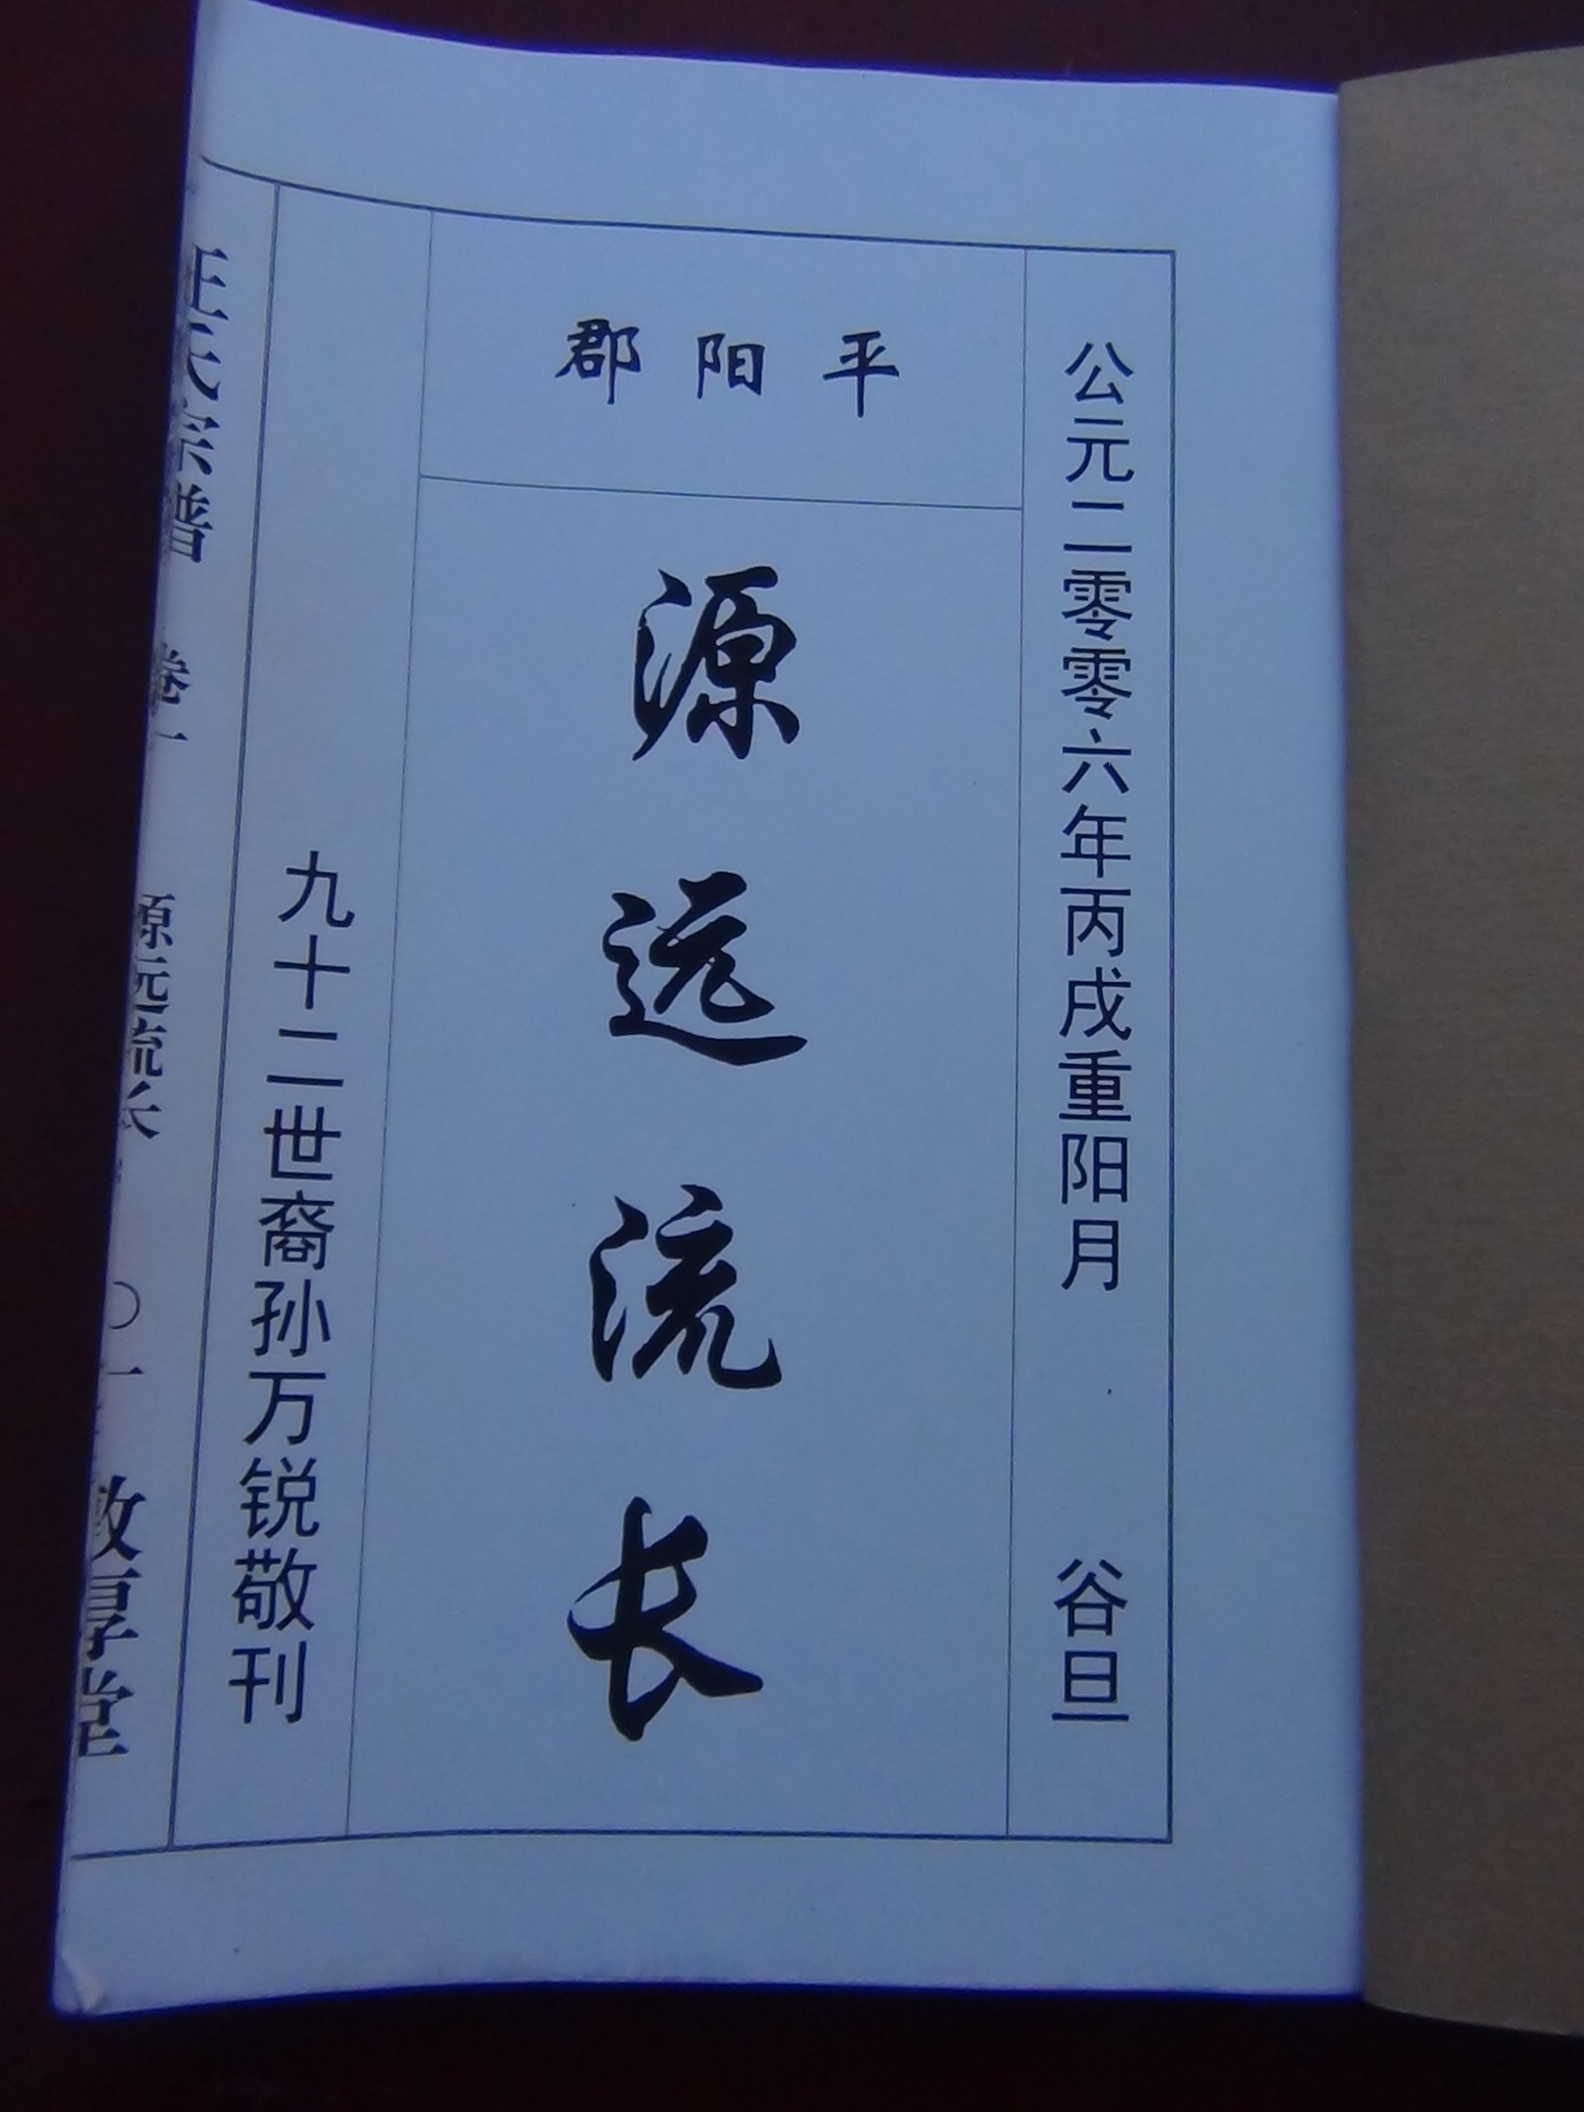 公元二零零六年丙戌重阳月 谷旦
平阳郡
源远流长
九十二世裔孙万锐敬刊
汪氏宗谱 卷一 源远流长 〇一 敦厚堂